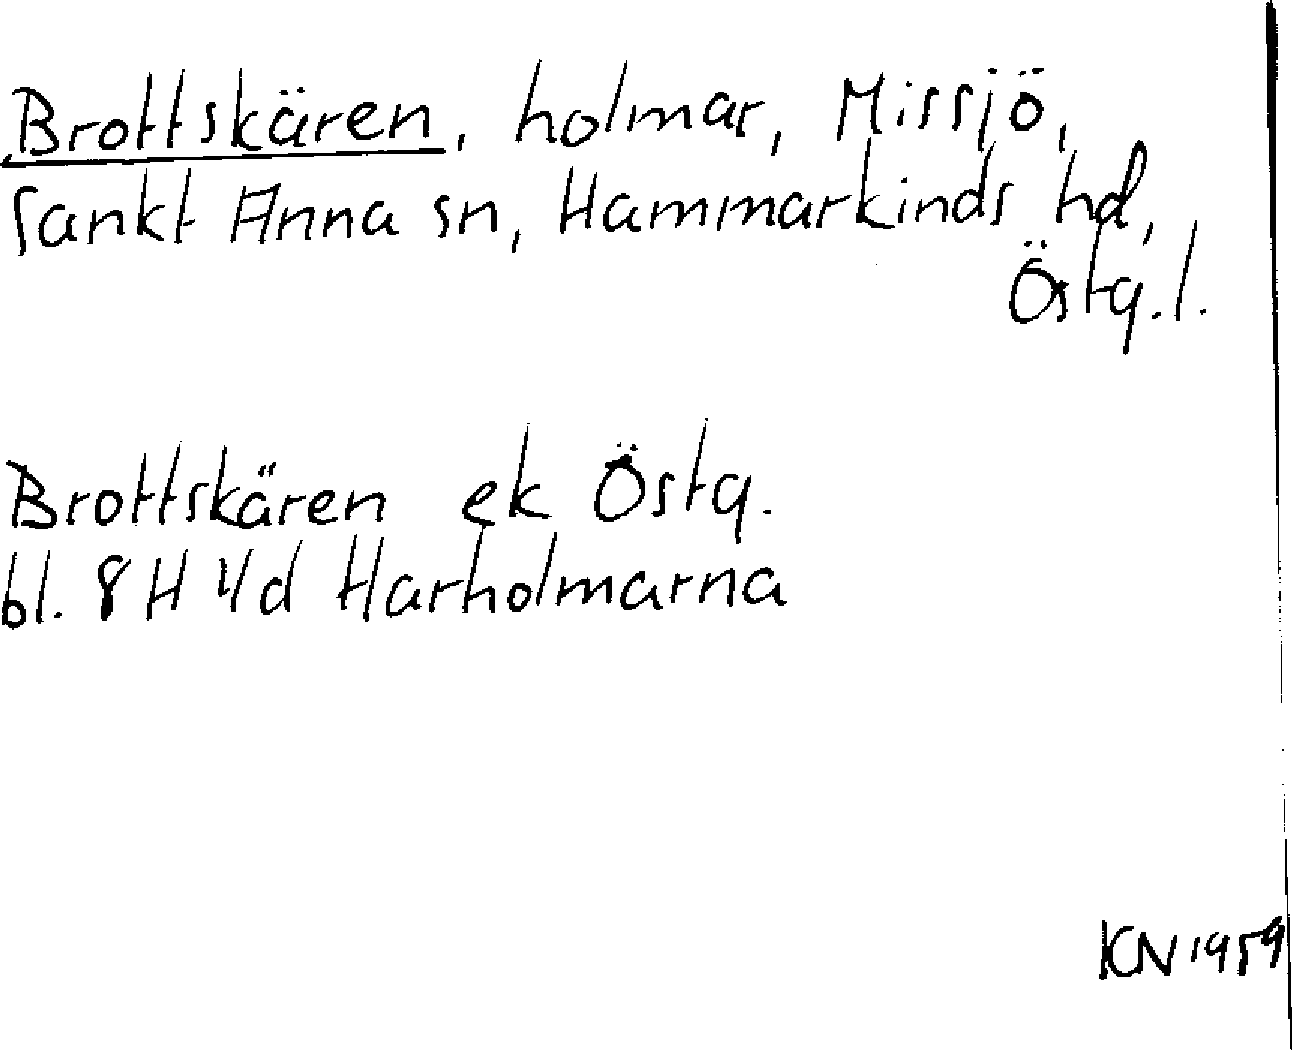 Brottskären, holmar, Missjö,
Sankt Anna sn, Hammarkinds hd,
Östg.l.
Brottskären ek Östg.
bl. 8H 4d Harholmarna
KN 1959